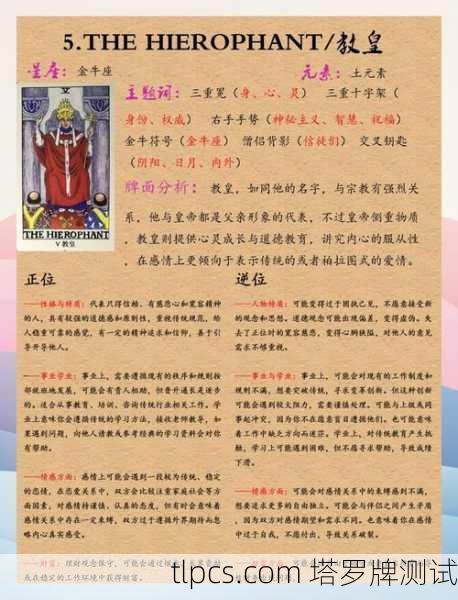 5.THE HIEROPHANT/教皇
星座：金牛座
元素：土元素
主题词：三重冕（身、心、灵） 三重十字架（
身份、权威） 右手手势（神秘主义、智慧、祝福）
金牛符号（金牛座） 僧侣背影（信徒们） 交叉钥匙
（阴阳、日月、内外）
V
THE HIEROPHANT
V 教皇
牌面分析：教皇，如同他的名字，与宗教有强烈关
系，他与皇帝都是父亲形象的代表，不过皇帝侧重物质
，教皇则提供心灵成长与道德教育，讲究内心的服从性
，在感情上更倾向于表示传统的或者柏拉图式的爱情。
正位
——性格与特质：代表只得信赖、有慈悲心和宽容精神
的人，具有较强的道德感和原则性，重视传统规范，给
人稳重可靠的感觉，有一定的精神追求和信仰，善于引
导开导他人。
——事业学业：事业上，需要遵循现有的秩序和规则按
部就班地发展，可能会有贵人相助，但晋升通长是逐步
的。适合从事教育、培训、咨询传统行业相关工作。学
业上意味你会遵循传统的学习方法，接收老师教导，如
果遇到问题，向他人请教或参考经典的学习资料会对你
有帮助。
——情感方面：感情上可能会遇到一段较为传统、稳定
的恋情，在恋爱关系中，双方会比较注重家庭社会等方
面因素，对感情持谨慎、认真的态度，但有时会意味着
感情关系中存在一定束缚，双方过于遵循外界期待而忽
略内心真实感受。
——财富：理财观念保守，可能会通过
或在稳定的工作环境中获得财富。
逆位
——人物特质：可能变得过于固执己见，不愿意接受新
的观念和思想。道德观念可能出现偏差，变得虚伪。失
去了正位时的宽容慈悲，变得心胸狭隘，对他人的意见
需求不够重视。
——事业与学业：事业上，可能会对现有的工作制度和
规则不满，想要突破传统，寻求变革创新。但这种创新
可能会遇到较大阻力，需要谨慎处理。可能与上级或同
事起冲突，因为你不在愿意盲目遵循他们。也可能意味
着工作中缺乏方向而迷茫。学业上，对传统教育产生抵
触，学习上可能遇到困难，但不愿寻求帮助，导致成绩
下滑。
——情感方面：可能会对感情关系中的束缚感到不满，
想要追求更多的自由独立。可能会与伴侣之间产生矛盾
，因为双方对感情期望和需求不同。也意味着你在感情
中过于自我，不愿付出，导致关系破裂。
tlpcs.com 塔罗牌测试